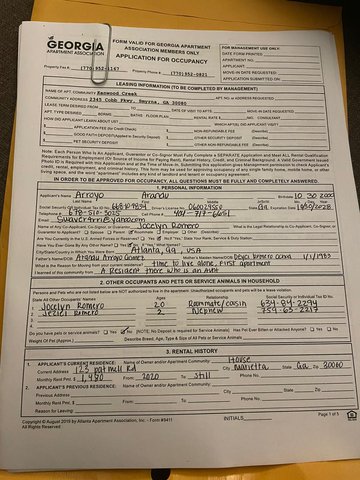 GEORGIA
APARTMENT ASSOCIATION
FORM VALID FOR GEORGIA APARTMENT
ASSOCIATION MEMBERS ONLY
APPLICATION FOR OCCUPANCY
Property Fax #: (770) 952-1167 Property Phone #: (770) 952-0821
FOR MANAGEMENT USE ONLY:
DATE FORM PRINTED:
APARTMENT NO.
APPLICANT:
MOVE-IN DATE REQUESTED:
APPLICATION SUBMITTED ON:
LEASING INFORMATION (TO BE COMPLETED BY MANAGEMENT)
NAME OF APT. COMMUNITY Kenwood Creek
COMMUNITY ADDRESS 2343 Cobb Pkwy, Smyrna, GA 30080 APT. NO. or ADDRESS REQUESTED
LEASE TERM DESIRED FROM TO DATE OF VISIT TO APTS MOVE-IN DATE REQUESTED:
APT. TYPE DESIRED BDRMS. BATHS FLOOR PLAN RENTAL RATE $ NO. CONSULTANT
HOW DID APPLICANT LEARN ABOUT US? INITIAL VISIT WAS BY
APPLICATION FEE (No Credit Check) NON-REFUNDABLE FEE (Describe)
GOOD FAITH DEPOSIT(Applied to Security Deposit) SECURITY DEPOSIT
PET SECURITY DEPOSIT OTHER SECURITY DEPOSIT
OTHER NON-REFUNDABLE FEE (Describe)
Note: Each Person Who Is An Applicant, Guarantor or Co-Signor Must Fully Complete A SEPARATE Application and Steet ALL Rental Qualification
Requirements for Employment (Or Source of Income for Paying Rent), Rental History, Credit, and Criminal Background. A Valid Government Issued
Photo ID is Required with this Application and at the Time of Move-In.
credit, rental, employment, and criminal history. This form may be used for approving occupancy of any single family home, mobile home, or other
living space, and the word "apartment" includes any kind of rental or leased dwelling or living space.
IN ORDER TO BE APPROVED FOR OCCUPANCY, ALL QUESTIONS MUST BE FULLY AND COMPLETELY ANSWERED.
1. PERSONAL INFORMATION
Applicant's Name Arroyo Arandu Birthdate 10 30 2000
Social Security/Individual Tax ID No. Driver License No. State Ga Expiration Date
Telephone # E-Mail
Name of Any Co-Applicant, Co-Signor, or Guarantor Jocelyn Romero What is the Legal Relationship to Co-Applicant, Co-Signor or
Guarantor to Applicant? Spouse Parent Guarantor Co-Signor Other (Describe)
Are You Currently in the U.S. Armed Forces or Reserves? Yes No If "Yes," State Your Rank, Service & Duty Station:
Have You Ever Used Any Other Name? Yes No If "Yes," What Name(s)?
City/State/Country In Which You Were Born Atlanta, Ga, USA
Father's Name Arandu Arroyo Gomez Mother's Maiden Name/DOB Deyci Romero 1/1/1983
What is the Reason for Moving from your current residence? time to live alone, First apartment
I learned of this community from A Resident there who is an Aunt
2. OTHER OCCUPANTS AND PETS OR SERVICE ANIMALS IN HOUSEHOLD
Persons and Pets who are not listed below are NOT authorized to live in the apartment. Unauthorized occupants and pets will be a lease violation.
State All Other Occupants' Names Ages Relationship Social Security or Individual Tax ID No.
1. Jocelyn Romero 20 Roommate/cousin
2. Jeziel Romero 2 Nephew
3.
Do you have pets or service animals? Yes No (NOTE: No Deposit is required for Service Animals) Has Pet Ever Bitten or Attacked Anyone? Yes No
Weight Of Pet (Approx.) Describe Breed, Age, Type & Size of All Pets or Service Animals
3. RENTAL HISTORY
1. APPLICANT'S CURRENT RESIDENCE: Name of Owner and/or Apartment Community: House
Current Address 123 pat mell Rd City Marietta State Ga Zip 30060
Monthly Rent Pd: $ 1,480 From: 2020 To Still Phone No.
2. APPLICANT'S PREVIOUS RESIDENCE: Name of Owner and/or Apartment Community:
Previous Address City State Zip
Monthly Rent Pd: $ From: To Phone No.
Reason for Leaving:
© Copyright August 2019 by Atlanta Apartment Association, Inc. - Form #9411
All Rights Reserved
INITIALS
Page 1 of 5